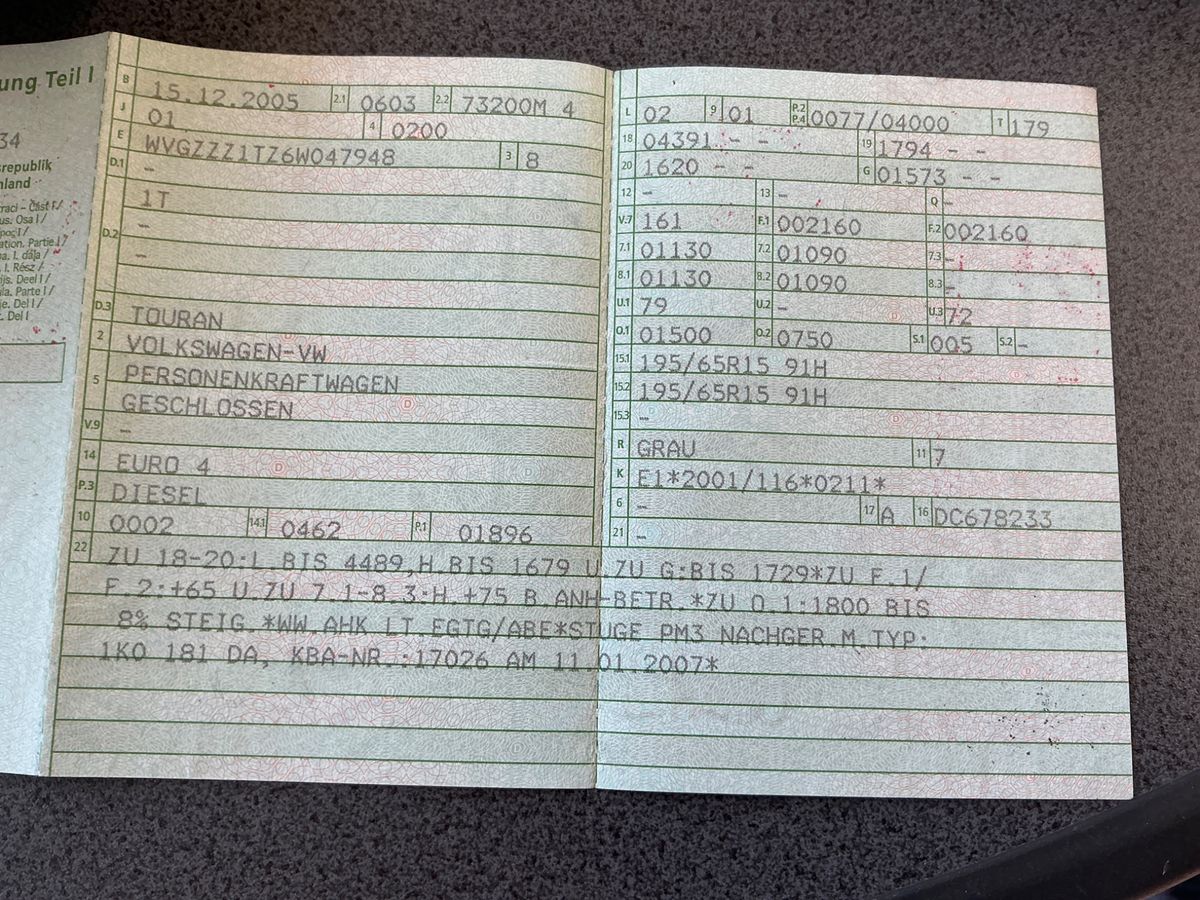 ung Teil I
34
srepublik
hland
raci - Část I /
us. Osa I /
poç I /
ation. Partie I /
na. I. daļa /
. I. Rész /
ijs. Deel I /
ula. Parte I /
je. Del I /
. Del I
B 15.12.2005 2.1 0603 2.2 73200M 4
J 01 4 0200
E WVGZZZ1TZ6W047948 3 8
D.1 -
D.2 1T
-
-
D.3 TOURAN
2 VOLKSWAGEN-VW
5 PERSONENKRAFTWAGEN
GESCHLOSSEN
V.9 -
14 EURO 4
P.3 DIESEL
10 0002 14.1 0462 P.1 01896
L 02 9 01 P.2 P.4 0077/04000 T 179
18 04391 - - 19 1794 - -
20 1620 - - G 01573 - -
12 - 13 - Q -
V.7 161 F.1 002160 F.2 002160
7.1 01130 7.2 01090 7.3 -
8.1 01130 8.2 01090 8.3 -
U.1 79 U.2 - U.3 72
O.1 01500 O.2 0750 S.1 005 S.2 -
15.1 195/65R15 91H
15.2 195/65R15 91H
15.3 -
R GRAU 11 7
K E1*2001/116*0211*
6 - 17 A 16 DC678233
21 -
22 ZU 18-20:L.BIS 4489,H.BIS 1679 U.ZU G:BIS 1729*ZU F.1/
F.2:+65 U.ZU 7.1-8.3:H.+75 B.ANH-BETR.*ZU O.1:1800 BIS
8% STEIG.*WW.AHK LT.EGTG/ABE*STUGE PM3 NACHGER.M.TYP:
1K0 181 DA, KBA-NR.:17026 AM 11.01.2007*